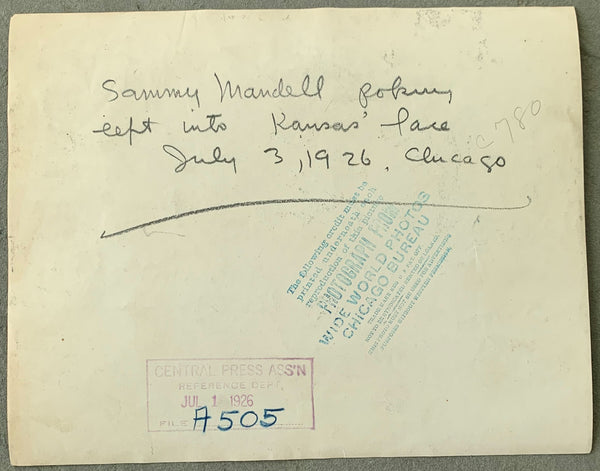 Sammy Mandell poking
left into Kansas' face
July 3, 1926, Chicago
c 780
The following credit must be
printed underneath each
reproduction of this picture
PHOTOGRAPH FROM
WIDE WORLD PHOTOS
CHICAGO BUREAU
CENTRAL PRESS ASS'N
REFERENCE DEPT.
JUL 1 1926
FILE A505